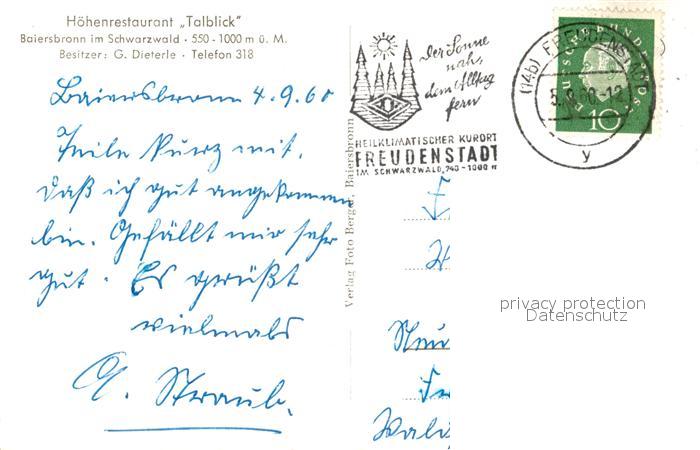 Höhenrestaurant „Talblick"
Baiersbronn im Schwarzwald · 550 - 1000 m ü. M.
Besitzer: G. Dieterle · Telefon 318
Baiersbronn 4.9.60
Teile kurz mit,
daß ich gut angekommen
bin. Gefällt mir sehr
gut. Es grüßt
vielmals
G. Straub.
Verlag Foto Berger, Baiersbronn
Der Sonne
nah,
dem Alltag
fern
HEILKLIMATISCHER KURORT
FREUDENSTADT
IM SCHWARZWALD, 740 - 1000 m
(14b) FREUDENSTADT
5.9.60.-12
y
DEUTSCHE BUNDESPOST
10
F
H
Neu
Wald
privacy protection
Datenschutz